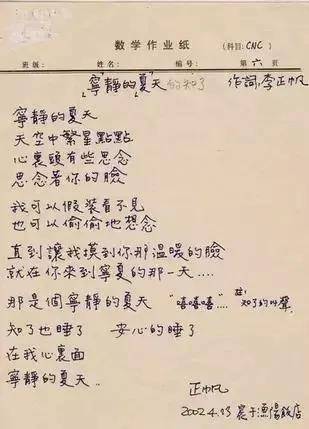 数学作业纸 (科目: CNC)
班级: 姓名: 编号: 第六页
「寧靜的夏」天的知了 作詞:李正帆
寧靜的夏天
天空中繁星點點
心裏頭有些思念
思念著你的臉
我可以假裝看不見
也可以偷偷地想念
直到讓我摸到你那溫暖的臉
就在你來到寧夏的那一天....
那是個寧靜的夏天 "嘻嘻嘻"... 註:知了的叫聲
知了也睡了 安心的睡了
在我心裏面
寧靜的夏天..
正帆
2002.4.13 晨于漁陽飯店